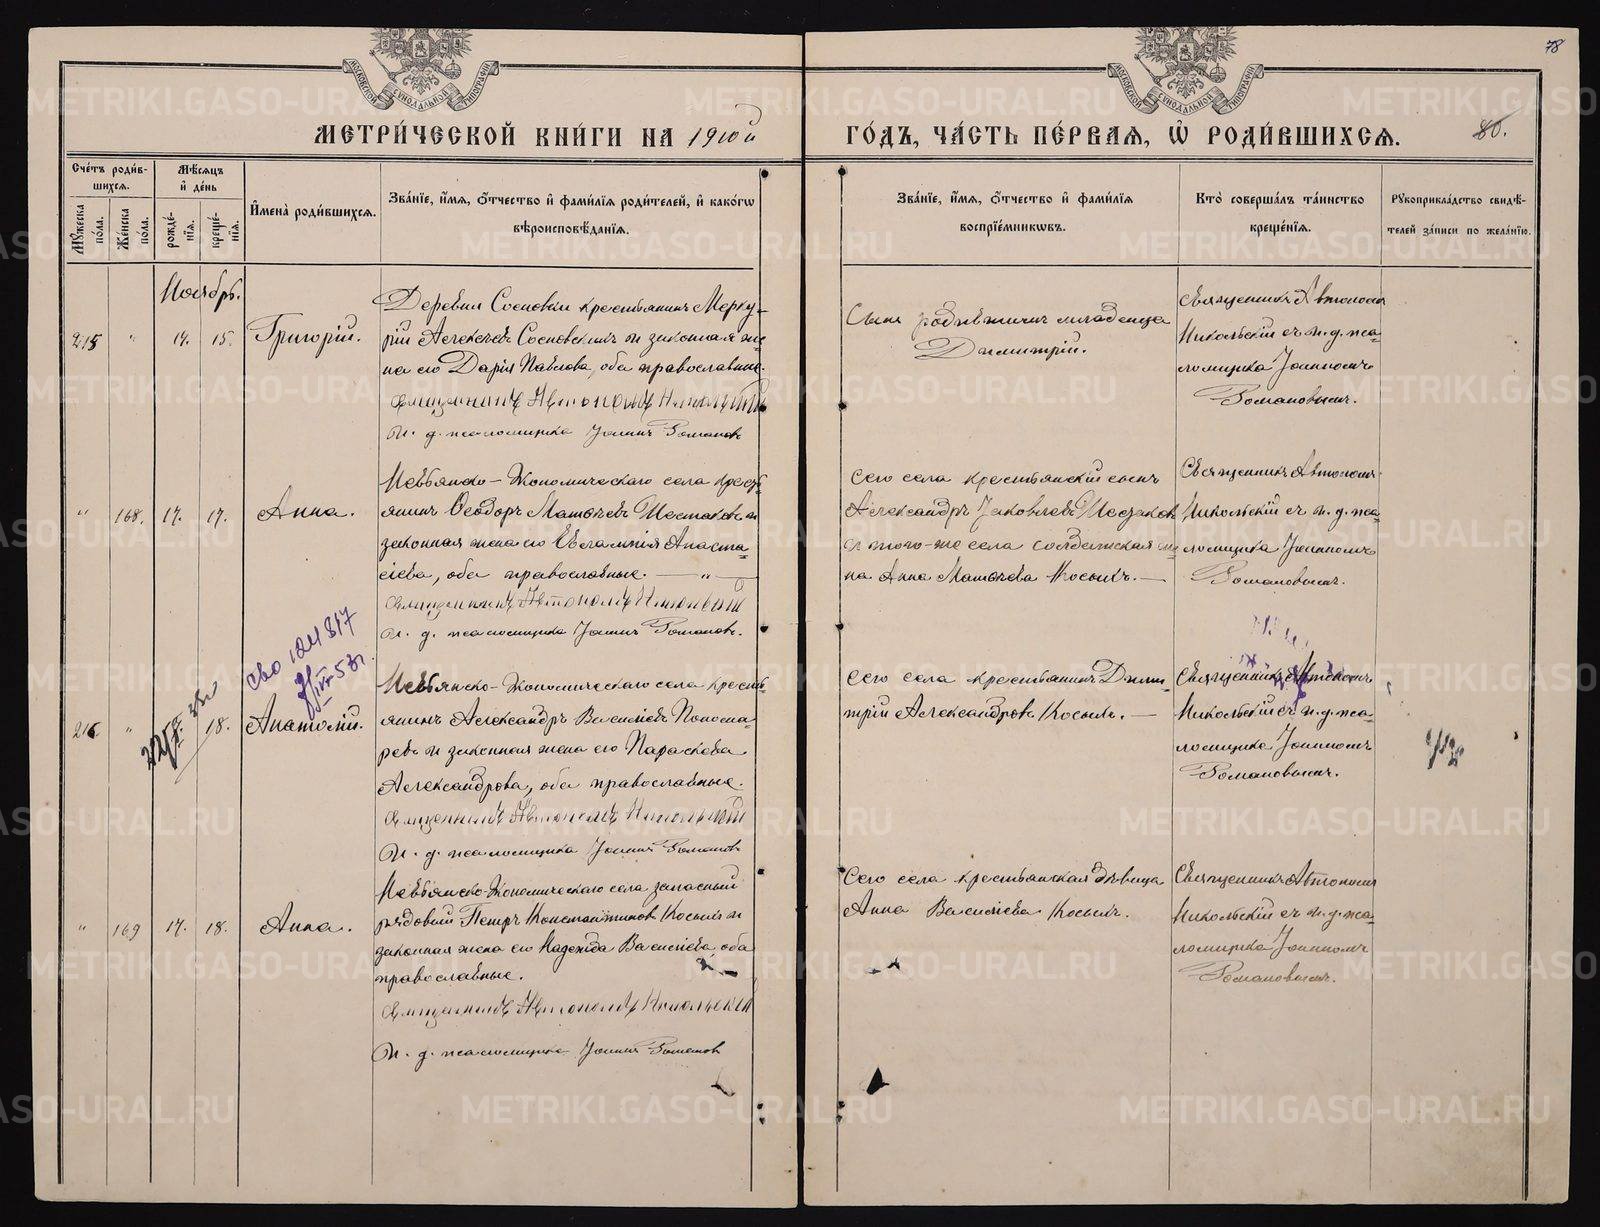 МОСКОВСКОЙ СѴНОДАЛЬНОЙ ТИПОГРАФІИ
МОСКОВСКОЙ СѴНОДАЛЬНОЙ ТИПОГРАФІИ
78
МЕТРИ́ЧЕСКОЙ КНИ́ГИ НА 1910й
ГО́ДЪ, ЧА́СТЬ ПЕ́РВАЯ, Ѡ҆ РОДИ́ВШИХСЯ.
80.
Сче́тъ роди́в-
шихся.
Мѣ́сяцъ
и҆ де́нь
Мꙋ́жеска
по́ла.
Же́нска
по́ла.
рожде́-
нїя.
креще́-
нїя.
И҆мена̀ роди́вшихся.
Зва́нїе, и҆́мя, ѻ҆́тчество и҆ фами́лїя роди́телей, и҆ како́гѡ
вѣроисповѣ́данїя.
Зва́нїе, и҆́мя, ѻ҆́тчество и҆ фами́лїя
воспрїе́мникѡвъ.
Кто̀ соверша́лъ та́инство
креще́нїя.
Рꙋкоприкла́дство свидѣ́-
телей за́писи по жела́нїю.
Ноябрь.
215 " 14. 15. Григорій.
Деревни Сосновки крестьянинъ Мерку-
рій Алексѣевъ Сосновскихъ и законная же-
на его Дарія Павлова, оба православные.
Священникъ Автономъ Никольскій
И. д. псаломщика Іоаннъ Романовъ
Сынъ родившихъ младенца
Димитрій.
Священникъ Автономъ
Никольскій съ и. д. пса-
ломщика Іоанномъ
Романовымъ.
" 168. 17. 17. Анна.
Невьянско-Экономическаго села кресть-
янинъ Ѳеодоръ Матвѣевъ Шестаковъ и
законная жена его Евлампія Анаста-
сіева, оба православные. — " —
Священникъ Автономъ Никольскій
И. д. псаломщика Іоаннъ Романовъ.
Сего села крестьянскій сынъ
Александръ Іаковлевъ Шестаковъ
и того-же села солдатская же-
на Анна Матвѣева Косыхъ. —
Священникъ Автономъ
Никольскій съ и. д. пса-
ломщика Іоанномъ
Романовымъ.
216 " 18. Анатолій.
Невьянско-Экономическаго села кресть-
янинъ Александръ Василіевъ Понома-
ревъ и законная жена его Параскева
Александрова, оба православные.
Священникъ Автономъ Никольскій
И. д. псаломщика Іоаннъ Романовъ
Сего села крестьянинъ Дими-
трій Александровъ Косыхъ. —
Священникъ Автономъ
Никольскій съ и. д. пса-
ломщика Іоанномъ
Романовымъ.
" 169 17. 18. Анна.
Невьянско-Экономическаго села запасный
рядовой Петръ Константиновъ Косыхъ и
законная жена его Надежда Василіева, оба
православные.
Священникъ Автономъ Никольскій
И. д. псаломщика Іоаннъ Романовъ
Сего села крестьянская дѣвица
Анна Василіева Косыхъ.
Священникъ Автономъ
Никольскій съ и. д. пса-
ломщика Іоанномъ
Романовымъ.
METRIKI.GASO-URAL.RU